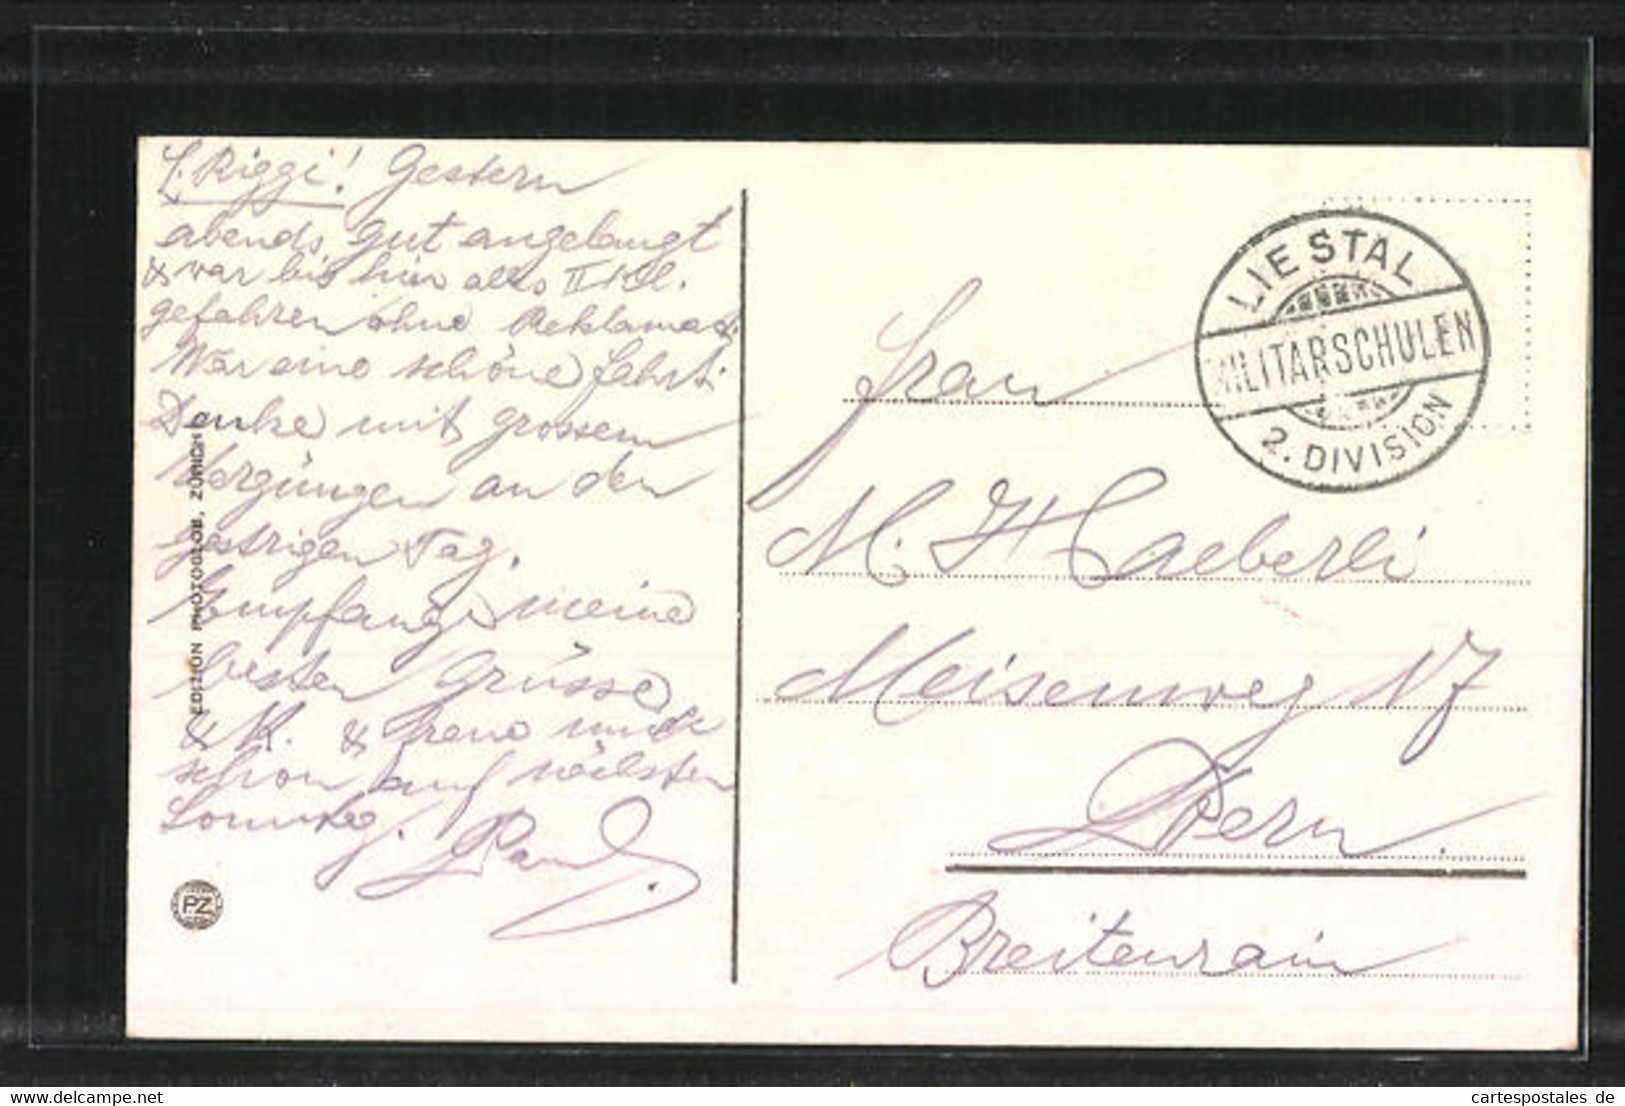 L. Riggi! Gestern
abends gut angelangt
& war bis hier alles II Kl.
gefahren ohne Reklamat.
War eine schöne Fahrt.
Danke mit grossem
Vergüngen an den
gestrigen Tag.
Empfange meine
besten Grüsse
& K. & Irene
schon auf nächsten
Sonntag. Paul.
EDITION PHOTOGLOB, ZÜRICH
PZ
LIESTAL
MILITÄRSCHULEN
2. DIVISION
Frau
M. Haeberli
Meisenweg 17
Bern.
Breitenrain
www.delcampe.net
cartespostales de